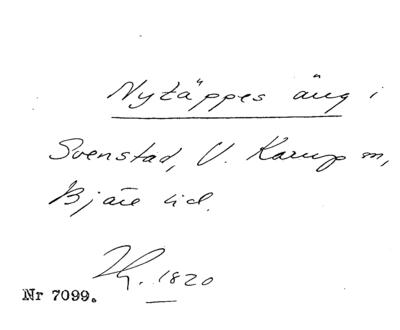 Nytäppes äng i
Svenstad, V. Karup sn,
Bjäre hd.
1820
Nr 7099.